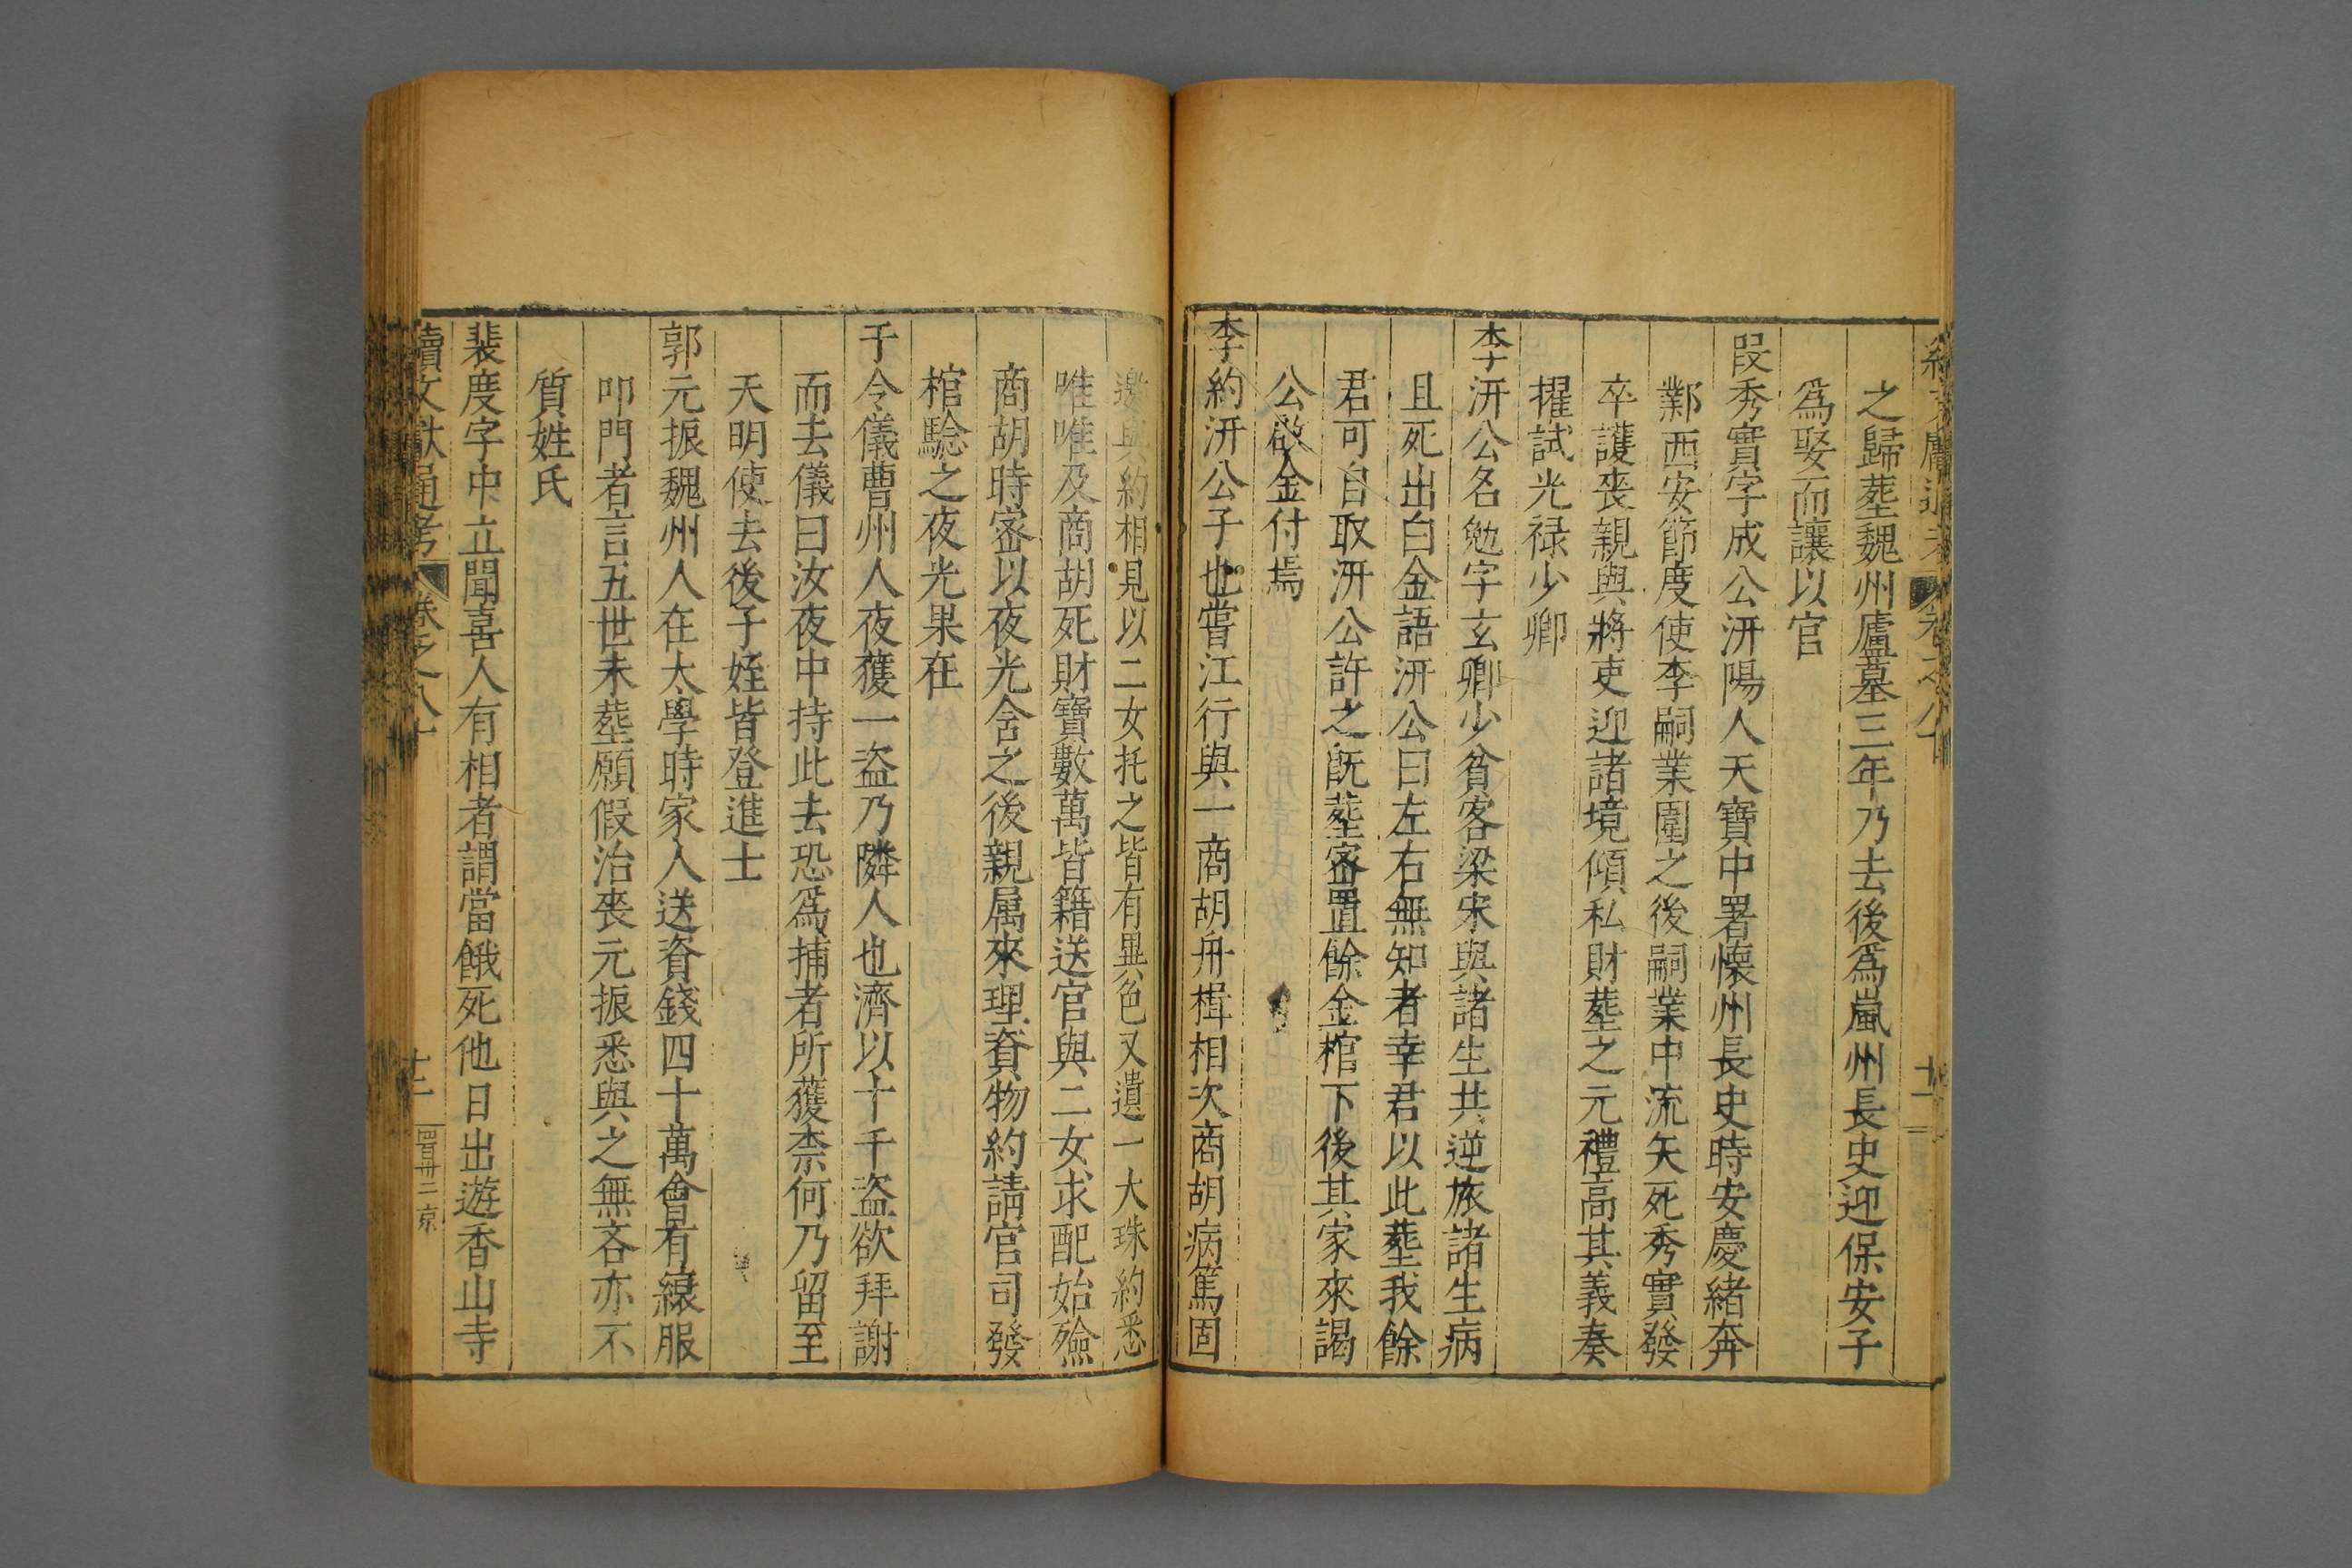 之歸塟魏州廬墓三年乃去後爲嵐州長史迎保安子
爲娶而讓以官
段秀實字成公汧陽人天寶中署懷州長史時安慶緒奔
鄴西安節度使李嗣業圍之後嗣業中流矢死秀實發
卒護喪親與將吏迎諸境傾私財塟之元禮高其義奏
擢試光禄少卿
李汧公名勉字玄卿少貧客梁宋與諸生共逆旅諸生病
且死出白金語汧公曰左右無知者幸君以此塟我餘
君可自取汧公許之旣塟宻置餘金棺下後其家來謁
公啟金付焉
李約汧公子也嘗江行與一商胡舟楫相次商胡病篤固
邀與約相見以二女托之皆有異色又遺一大珠約悉
唯唯及商胡死財寶數萬皆籍送官與二女求配始殮
商胡時宻以夜光含之後親属來理資物約請官司發
棺驗之夜光果在
于令儀曹州人夜獲一盗乃隣人也濟以十千盗欲拜謝
而去儀曰汝夜中持此去恐爲捕者所獲柰何乃留至
天明使去後子姪皆登進士
郭元振魏州人在太學時家人送資錢四十萬會有縗服
叩門者言五世未塟願假治喪元振悉與之無吝亦不
質姓氏
裴度字中立聞喜人有相者謂當餓死他日出遊香山寺
續文獻通考 卷之八十 十二 四百卅二 京